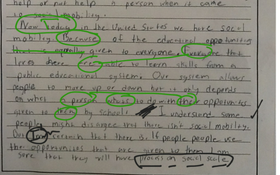 help or not help a person when it came
i.e. social mobility.
Now today in the United States we have social
mobility. Because of the educational opportunities
that is given to everyone. Everyone that
lives there able to learn skills from a
public educational system. Our system allows
people to move up or down but it only depends
on what a person to do with their opportunities
given to them by schools. I understand some
people might disagree that there isn't social mobility.
But I am certain that if people use
the opportunities that are given to them I am
sure that they will have on social scale.